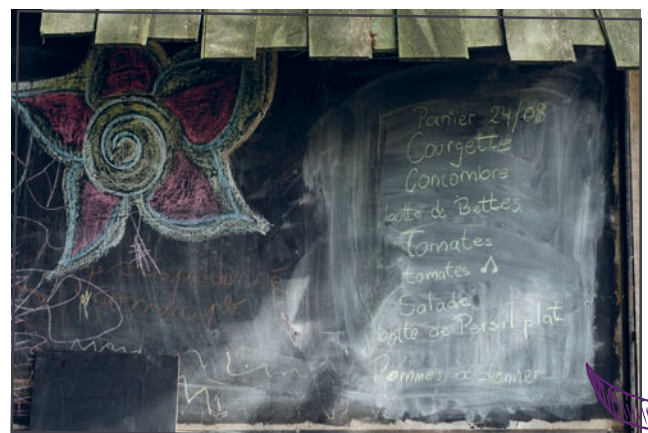 Panier 24/08
Courgette
Concombre
botte de Bettes
Tomates
tomates
Salade
botte de Persil plat
Pommes à donner